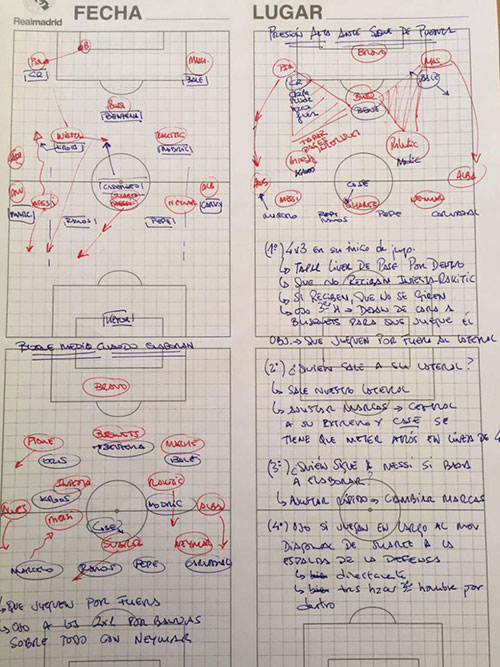 FECHA
Realmadrid
LUGAR
PRESION ALTA ANTE SAQUE DE PUERTA
CR
BALE
BENZEMA
KROOS
MODRIC
CASEMIRO
RAMOS
PEPE
NEYMAR
BLOQUE MEDIO CUANDO ELABORAN
BRAVO
PIQUE
BUSQUETS
BENZEMA
BALE
INIESTA
RAKITIC
KROOS
MODRIC
ALVES
MESSI
CASE
ALBA
SUAREZ
NEYMAR
MARCELO
RAMOS
PEPE
CARVAJAL
↳ QUE JUEGUEN POR FUERA
↳ OJO A LOS 2X1 POR BANDAS
SOBRE TODO CON NEYMAR
BRAVO
PIQ
MAS
CR
BALE
BUSQ
BENZE
INIESTA
KROOS
Rakitic
Modric
ALBA
CASE
MESSI
SUAREZ
NEYMAR
MARCELO
RAMOS
PEPE
CARVAJAL
(1º) 4v3 en su inicio de juego.
↳ TAPAR LINEA DE PASE POR DENTRO
↳ QUE NO RECIBAN INIESTA-RAKITIC
↳ SI RECIBEN, QUE NO SE GIREN
↳ OJO 3er H → DEJAN DE CARA A
BUSQUETS PARA QUE JUEGUE ÉL
OBJ. → QUE JUEGUEN POR FUERA AL LATERAL
(2º) ¿QUIÉN SALE A SU LATERAL?
↳ SALE NUESTRO LATERAL
↳ AJUSTAR MARCAS → CENTRAL
A SU EXTREMO Y CASE SE
TIENE QUE METER ATRÁS EN LÍNEA DE 4
(3º) ¿QUIÉN SIGUE A MESSI SI BAJA
A ELABORAR?
↳ AJUSTAR RÁPIDO → CAMBIAR MARCAS
(4º) OJO SI JUEGAN EN LARGO AL MOV
DIAGONAL DE SUAREZ A LA
ESPALDA DE LA DEFENSA
↳ directamente
↳ tras hacer 3er hombre por
dentro